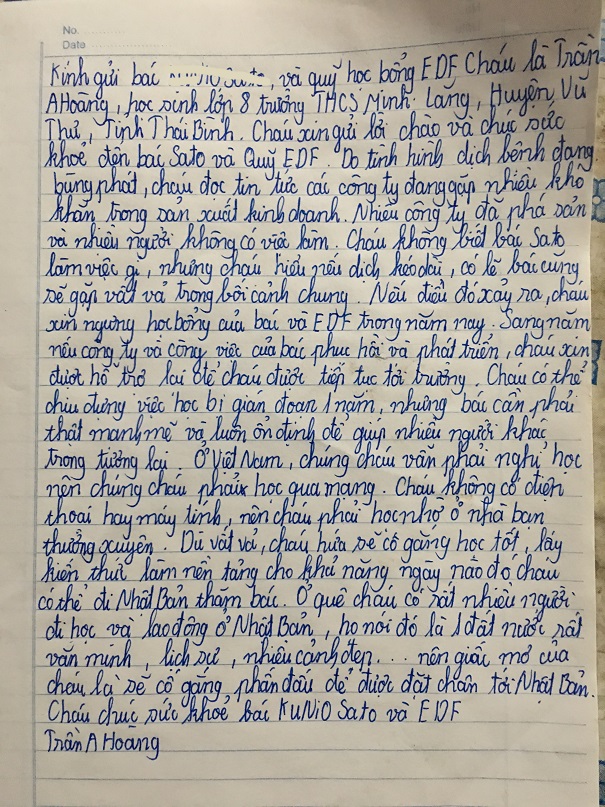 No.
Date
Kính gửi bác Sato, và quỹ học bổng EDF, Cháu là Trần
A Hoàng, học sinh lớp 8 trường THCS Minh Lãng, Huyện Vũ
Thư, Tỉnh Thái Bình. Cháu xin gửi lời chào và chúc sức
khoẻ đến bác Sato và Quỹ EDF. Do tình hình dịch bệnh đang
bùng phát, cháu đọc tin tức các công ty đang gặp nhiều khó
khăn trong sản xuất kinh doanh. Nhiều công ty đã phá sản
và nhiều người không có việc làm. Cháu không biết bác Sato
làm việc gì, nhưng cháu hiểu nếu dịch kéo dài, có lẽ bác cũng
sẽ gặp vất vả trong bối cảnh chung. Nếu điều đó xảy ra, cháu
xin ngưng học bổng của bác và EDF trong năm nay. Sang năm
nếu công ty và công việc của bác phục hồi và phát triển, cháu xin
được hỗ trợ lại để cháu được tiếp tục tới trường. Cháu có thể
chịu đựng việc học bị gián đoạn 1 năm, nhưng bác cần phải
thật mạnh mẽ và luôn ổn định để giúp nhiều người khác
trong tương lai. Ở Việt Nam, chúng cháu vẫn phải nghỉ học
nên chúng cháu phải học qua mạng. Cháu không có điện
thoại hay máy tính, nên cháu phải học nhờ ở nhà bạn
thường xuyên. Dù vất vả, cháu hứa sẽ cố gắng học tốt, lấy
kiến thức làm nền tảng cho khả năng ngày nào đó, cháu
có thể đi Nhật Bản thăm bác. Ở quê cháu có rất nhiều người
đi học và lao động ở Nhật Bản, họ nói đó là 1 đất nước rất
văn minh, lịch sự, nhiều cảnh đẹp... nên giấc mơ của
cháu là sẽ cố gắng, phấn đấu để được đặt chân tới Nhật Bản.
Cháu chúc sức khoẻ bác KUNIO Sato và EDF
Trần A Hoàng